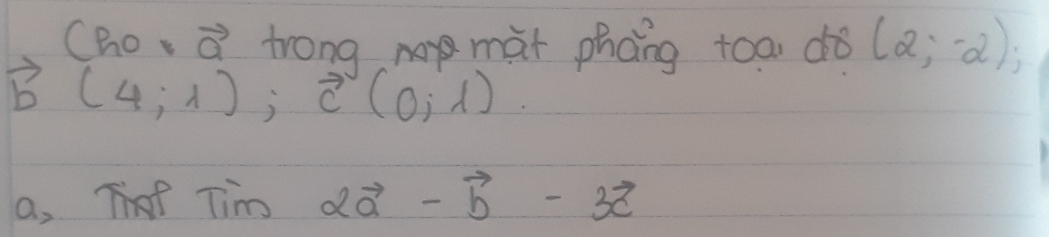 Cho a⃗ trong mặt phẳng toạ độ (2; -2);
b⃗ (4; 1); c⃗ (0; 1).
a, Tìm 2a⃗ - b⃗ - 3c⃗